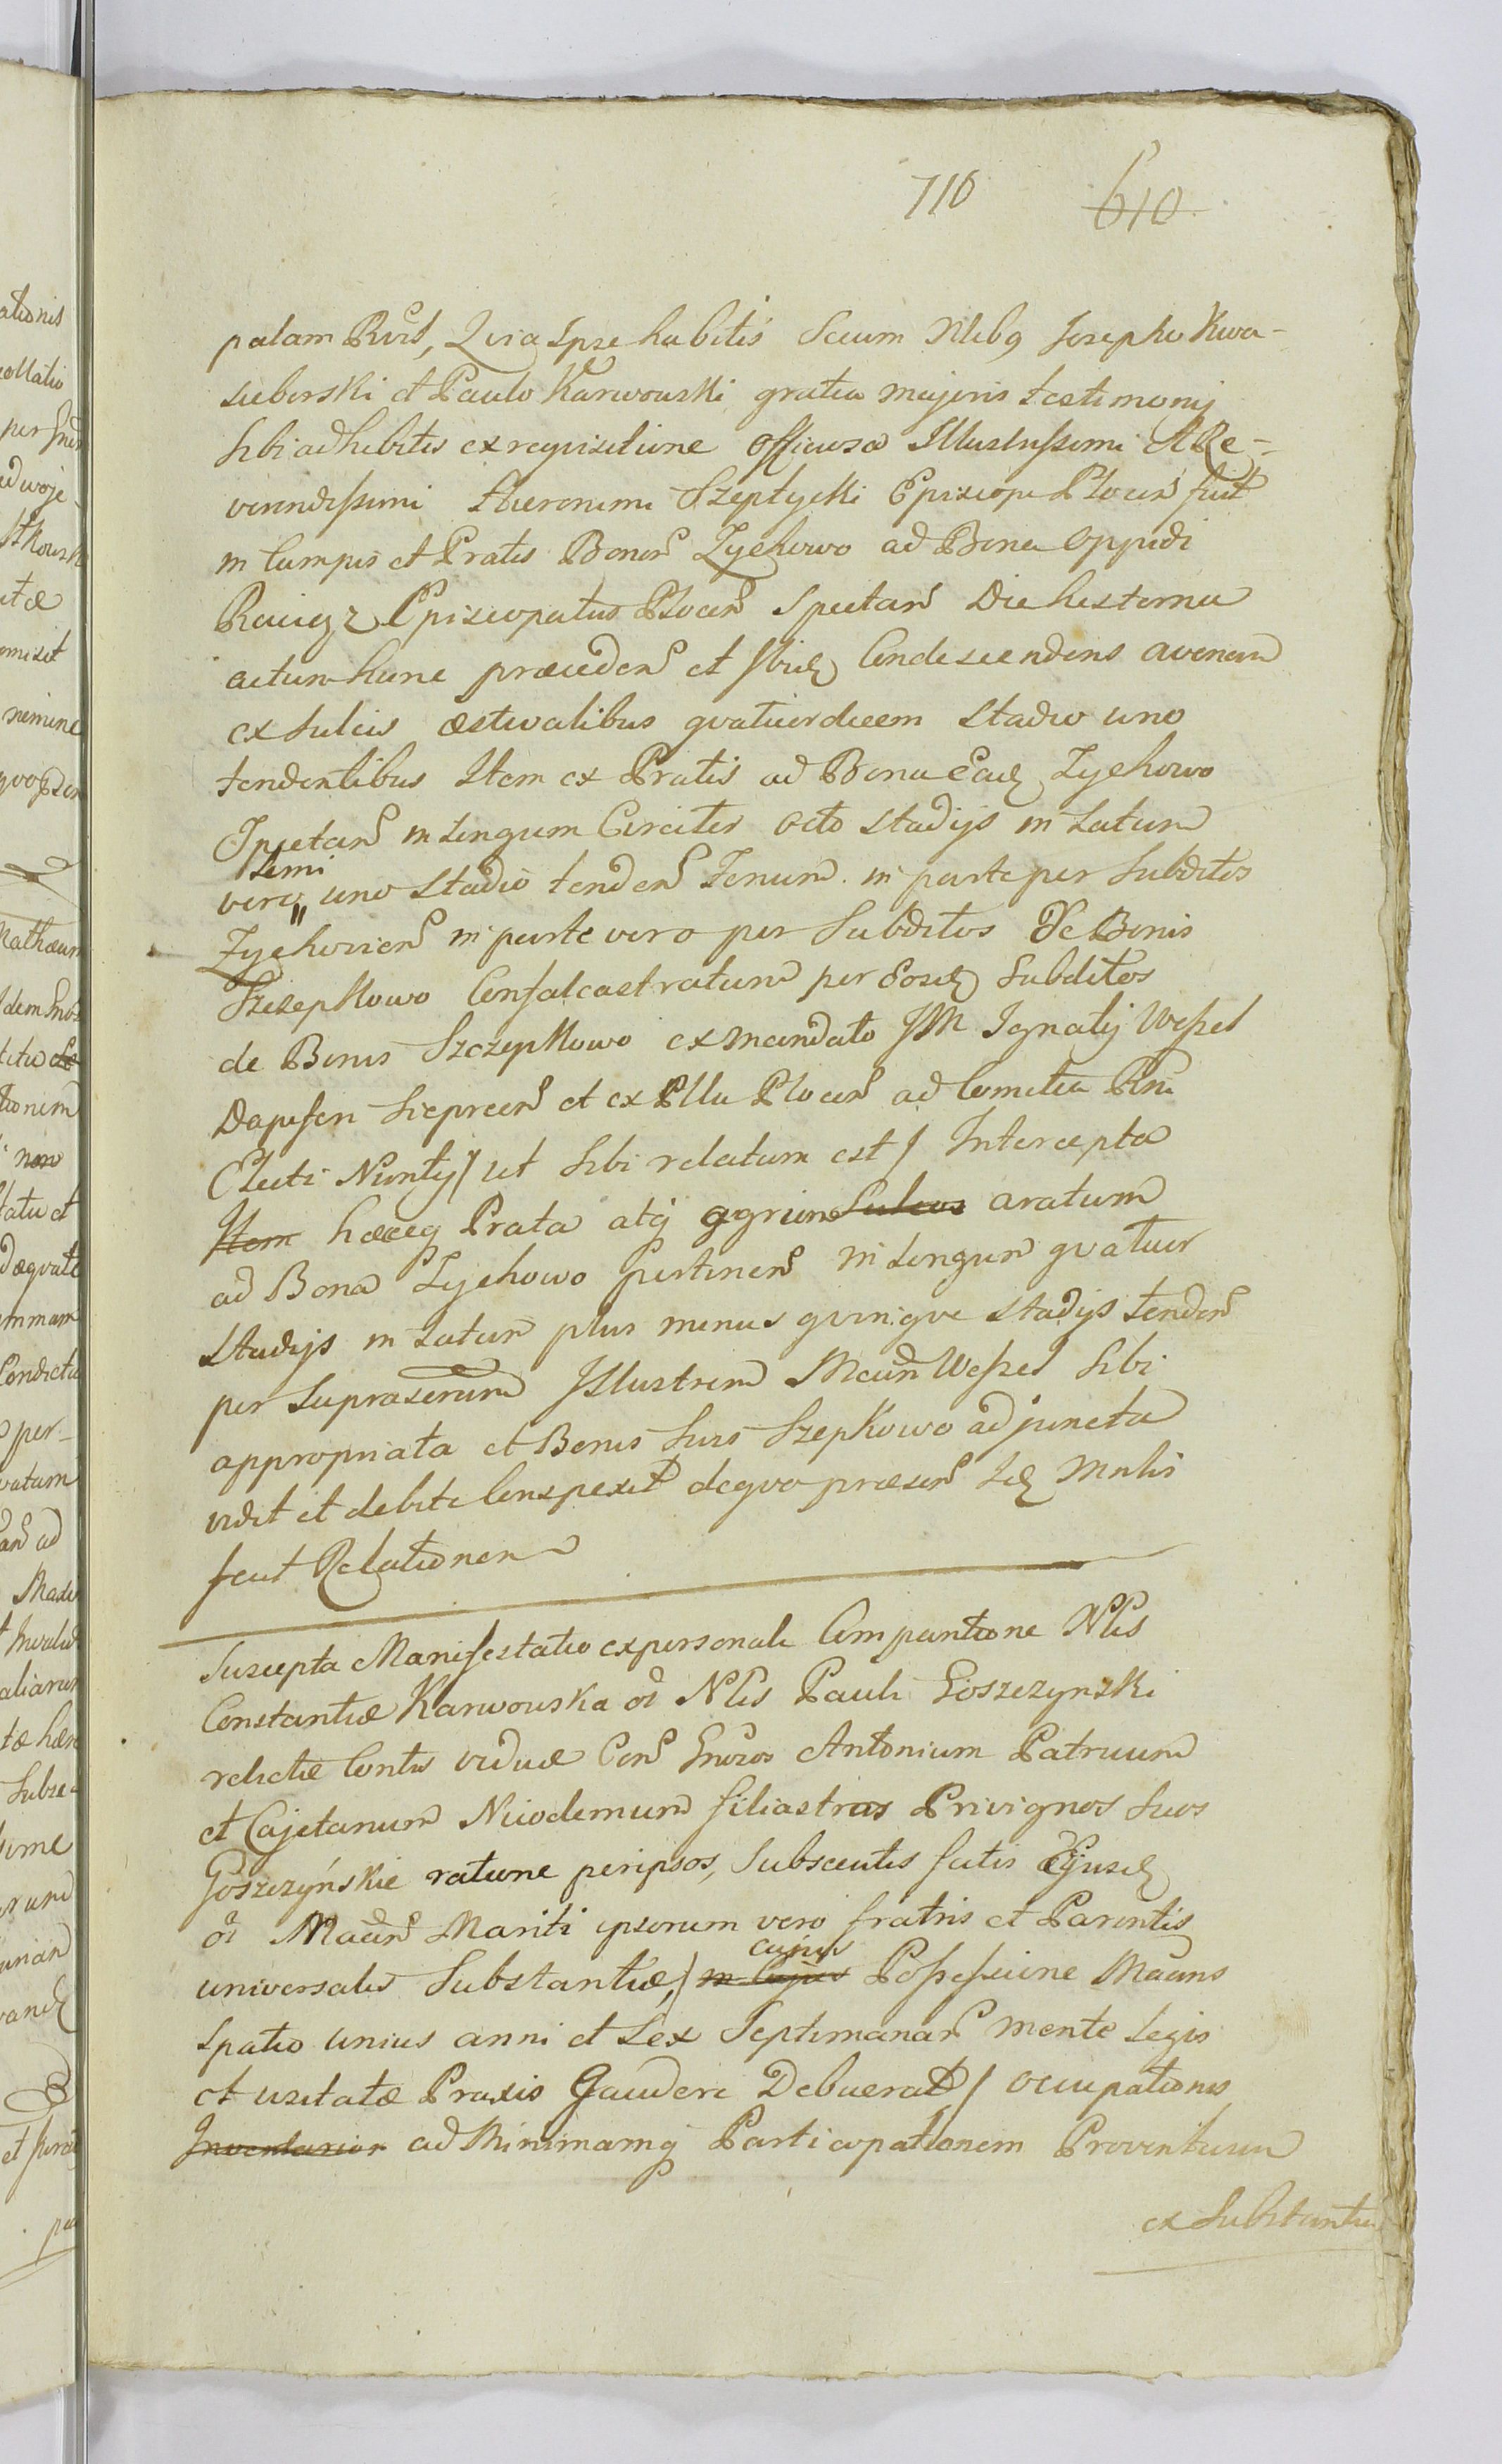 710 610
palam Rvit, Quia Ipse habitis Secum Nlibq Josepho Kwa-
sieborski et Paulo Karwowski gratia majoris testimonij
sibi adhibitis ex requisitione officiosa Illustrissimi ARe-
verendissimi Hieronimi Szeptycki Episcopi Plocen fuit
in Campis et Pratis Bonor Zychowo ad Bona Oppidi
Raciąz Episcopatus Plocen Spectan Die hesterna
actum hunc præceden et Ibid Condescendens avenam
ex Sulcis æstivalibus qvatuordecem Stadio uno
tendentibus Item ex Pratis ad Bona Ead Zychowo
Spectan in Longum Circiter octo Stadijs in Latum
vero semi uno Stadio tenden Fenum in parte per Subditos
Zychovien in parte vero per Subditos De Bonis
Szczepkowo Confalcastratum per Eosd Subditos
de Bonis Szczepkowo ex mandato JM Ignatij Wessel
Dapiferi Sieprcen et ex Pllu Plocen ad Comitia Rni
Electi Nuntij / ut Sibi relatum est / Intercepta
Item hæceq Prata atq agrum Sulcos aratum
ad Bona Zychowo pertinen in Longum qvatuor
Stadijs in Latum plus minus qvinqve Stadijs tenden
per Suprascrium Illustrem Mcum Wessel Sibi
appropriata et Bonis Suis Szepkowo adjuncta
vidit et debite Conspexit deqvo præsen Sd Mnlis
fecit Relationem
Suscepta Manifestatio ex personali Comparitione Nlis
Constantiæ Karwowska oi Nlis Pauli Goszczynski
relictæ Contis viduæ Con Gnrosos Antonium Patruum
et Cajetanum Nicodemum filiastros Privignos Suos
Goszczyńskie ratione peripsos, Subsecutis fatis Ejusd
oi Macin Mariti ipsorum vero fratris et Parentis
universalis Substantiæ, / in Cujus cujus Possessione Macins
Spatio unius anni et Sex Septimanar mente Legis
et usitatæ Praxis Gaudere Debuerat / occupationis
Inventarior ad Minimamq Participationem Proventuum
ex Substantia